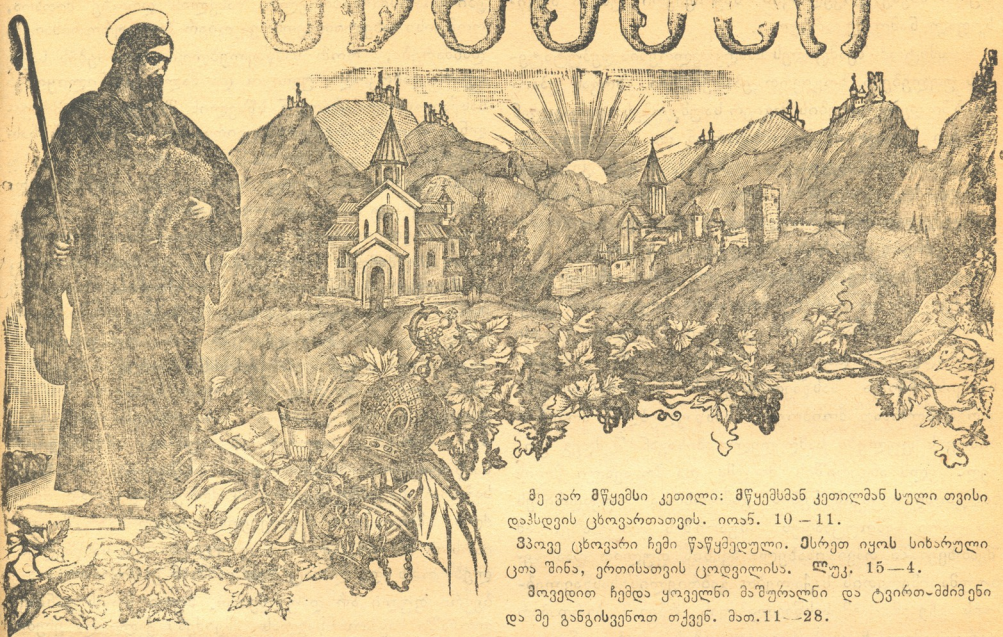 მე ვარ მწყემსი კეთილი: მწყემსმან კეთილმან სული თვისი
დაჰსდვის ცხოვართათვის. იოან. 10 – 11.
ვპოვე ცხოვარი ჩემი წაწყმედული. ესრეთ იყოს სიხარული
ცთა შინა, ერთისათვის ცოდვილისა. ლუკ. 15—4.
მოვედით ჩემდა ყოველნი მაშურალნი და ტვირთ-მძიმენი
და მე განგისვენოთ თქვენ. მათ. 11—28.